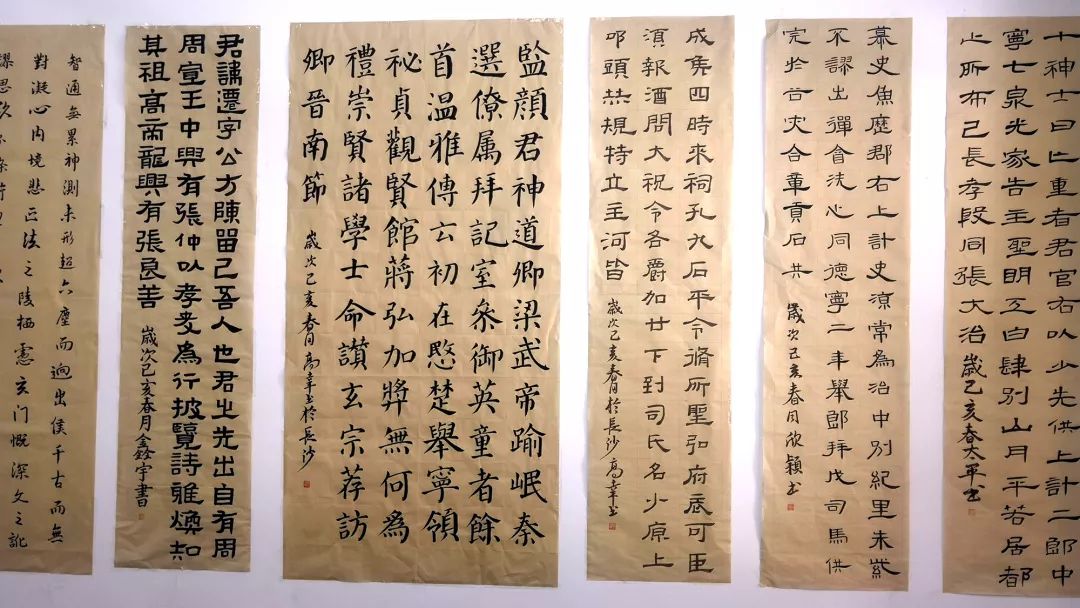 十神士曰亡重者君官右以少先供上計二郎中
寧七泉光家告主聖明工白肆別山月平若居都
止所布己長孝段同張大治 歲己亥春太軍書
慕史魚歷郡右上計史涼常為治中別紀里未裁
不謬出彈會洗心同德寧二年舉郎拜戊司馬供
完於谷灾合童貢石共 歲次己亥春月欣穎書
成隽四時來祠孔九石平令脩所聖弘府底可臣
須報酒問大祝令各爵加廿下到司氏名少原上
叩頭恭規特立主河皆 歲次己亥春月於長沙
監顔君神道卿梁武帝踰岷秦
選僚属拜記室叅御英童者餘
首温雅傳玄初在愍楚舉寧領
祕貞觀賢館蔣弘加獎無何爲
禮崇賢諸學士命讃玄宗荐訪
卿晋南節 歲次己亥春月 於長沙
君諱遷字公方陳留己吾人也君之先出自有周
周宣王中興有張仲以孝友為行披覽詩雅煥知
其祖高帝龍興有張良善 歲次己亥春月鑫宇書
智通無累神測未形超六塵而迥出侯千古而無
對凝心内境悲正法之陵栖慮玄門慨深文之訛